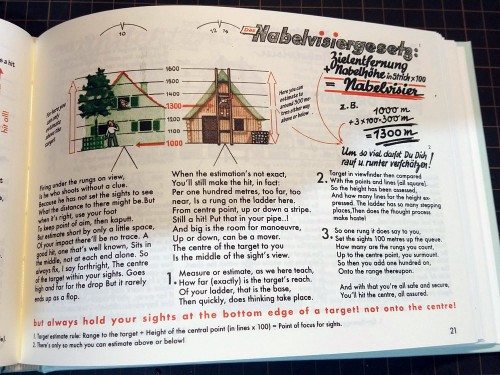 a hit
hit all!
10
12 ¼
Das Nabelvisiergesetz:
Zielentfernung
+ Nabelhöhe in Strich x 100
= Nabelvisier
z.B.
1000 m
+3x100=300 m
=1300 m
Um so viel darfst Du Dich
rauf u. runter verschätzen!
1600
1500
1400
1300
1200
1100
1000
For hard aims
can only
estimate
above the
target
Here you can
estimate to
around 300 me-
tres either way
above or below
Firing under the rungs on view,
is he who shoots without a clue.
Because he has not set the sights to see
What the distance to there might be. But
when it's right, use your foot
To keep point of aim, then kaputt.
But estimate short by only a little space,
Of your impact there'll be no trace. A
good hit, one that's well known, Sits in
the middle, not at each end alone. So
always fix, I say forthright, The centre
of the target within your sights. Goes
high and far for the drop But it rarely
ends up as a flop.
When the estimation's not exact,
You'll still make the hit, in fact:
Per one hundred metres, too far, too
near, Is a rung on the ladder here.
From centre point, up or down a stripe.
Still a hit! Put that in your pipe..!
And big is the room for manoeuvre,
Up or down, can be a mover.
The centre of the target to you
Is the middle of the sight's view.
1. Measure or estimate, as we here teach,
How far (exactly) is the target's reach.
Of your ladder, that is the base,
Then quickly, does thinking take place.
2. Target in viewfinder then compared
With the points and lines (all square).
So the height has been assessed,
And how many lines for the height ex-
pressed. The ladder has so many stepping
places, Then does the thought process
make haste!
3. So one rung it does say to you,
Set the sights 100 metres up the queue.
How many are the rungs you count,
Up to the centre point, you surmount.
So then you add one hundred on,
Onto the range thereupon.
And with that you're all safe and secure,
You'll hit the centre, all assured.
but always hold your sights at the bottom edge of a target! not onto the centre!
1. Target estimate rule: Range to the target + Height of the central point (in lines x 100) = Point of focus for sights.
2. There's only so much you can estimate above or below!
21